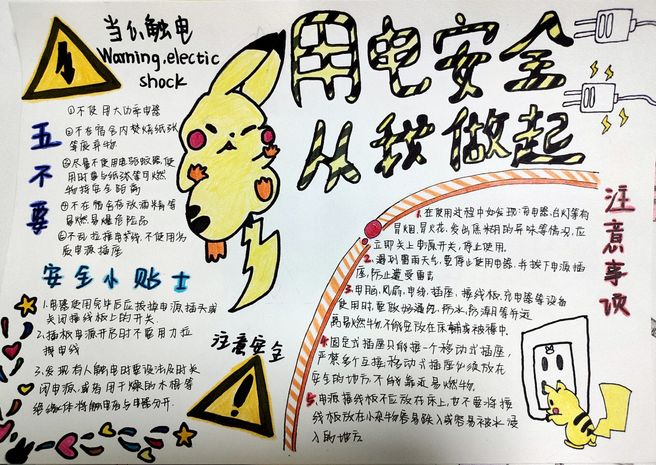 当心触电
Warning.electic
shock
用电安全
从我做起
五不要
①不使用大功率电器
②不在宿舍内焚烧纸张
等废弃物
③尽量不使用电蚊香,使
用时要与纸张等可燃
物持安全距离
④不在宿舍存放酒精等
易燃易爆危险品
⑤不乱拉接电线,不使用劣
质电源插座
安全小贴士
1.电器使用完毕后应拔掉电源插头或
关闭接线板上的开关.
2.插板电源开启时不要用力拉
拽电线
3.发现有人触电时要设法及时关
闭电源,或者用干燥的木棍等
将触电者与电器分开.
注意安全
注意事项
1.在使用过程中如发现:充电器,台灯等有
冒烟,冒火花,发出焦糊的异味等情况,应
立即关上电源开关,停止使用.
2.遇到雷雨天气,要停止使用电器,并拔下电源插
座,防止遭受雷击
3.电脑,风扇,电线,插座,接线板,充电器等设备
使用时,要做好通风,防水,防潮用等并远
离易燃物,不能当放在床铺或被褥中.
4.固定式插座只能接一个移动式插座,
严禁多个互接,移动式插座必须放在
安全的地方,不能靠近易燃物.
5.电源接线板不应放在床上,也不要将接
线板放在小杂物容易跌入或容易被水浸
入的地方